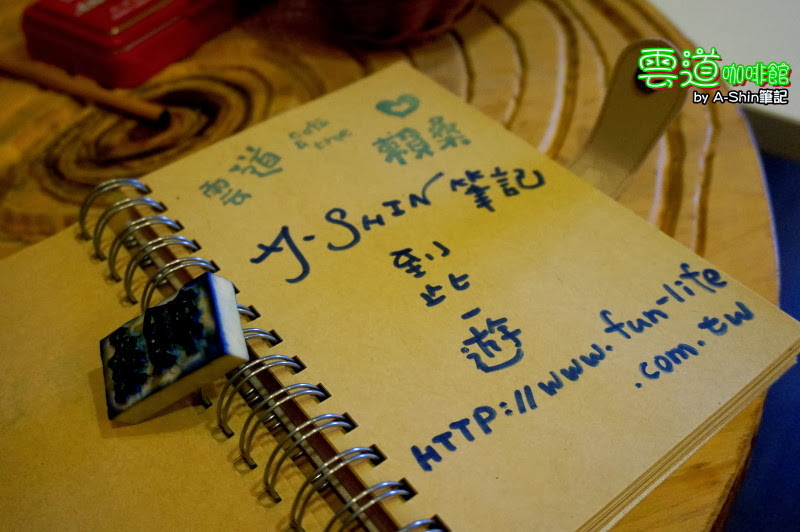 雲道咖啡館
by A-Shin筆記
雲道
賴桑
A-SHIN筆記
到
此
一
遊
HTTP://www.fun-life
.com.tw